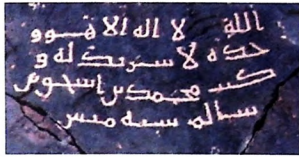 الله لا اله الا هو و
حده لا شريك له و
كتب محمد بن
سالم سنة